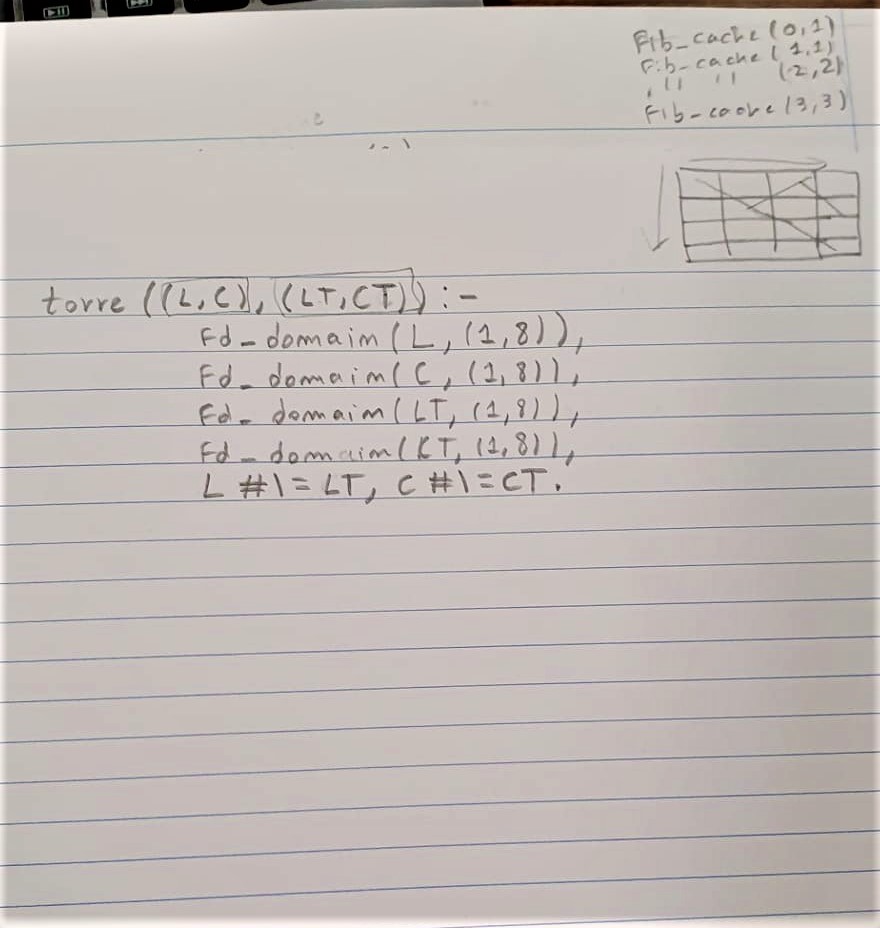 Fib_cache (0,1)
Fib_cache (1,1)
" " (2,2)
Fib_cache (3,3)
torre ((L,C), (LT,CT)) :-
Fd_domain (L, (1,8)),
Fd_domain (C, (1,8)),
Fd_domain (LT, (1,8)),
Fd_domain (CT, (1,8)),
L #\= LT, C #\= CT.